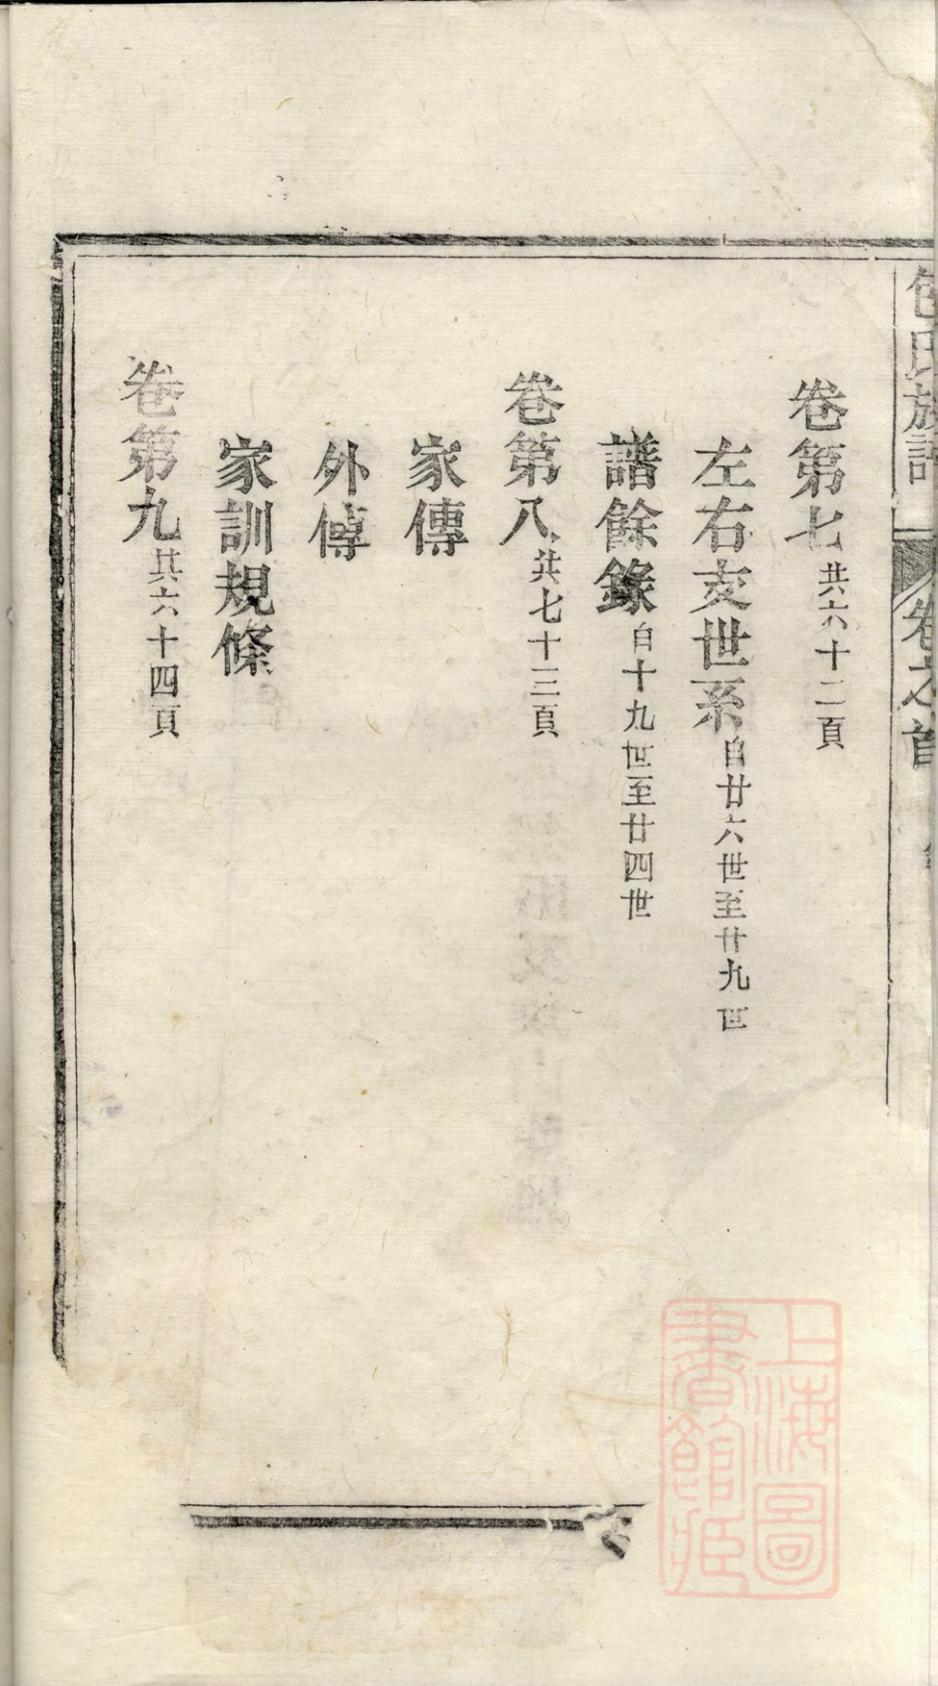 包氏族譜
卷之首
卷第七共六十二頁
左右支世系自廿六世至廿九世
譜餘錄自十九世至廿四世
卷第八共七十三頁
家傳
外傳
家訓規條
卷第九共六十四頁
上海圖
書館藏